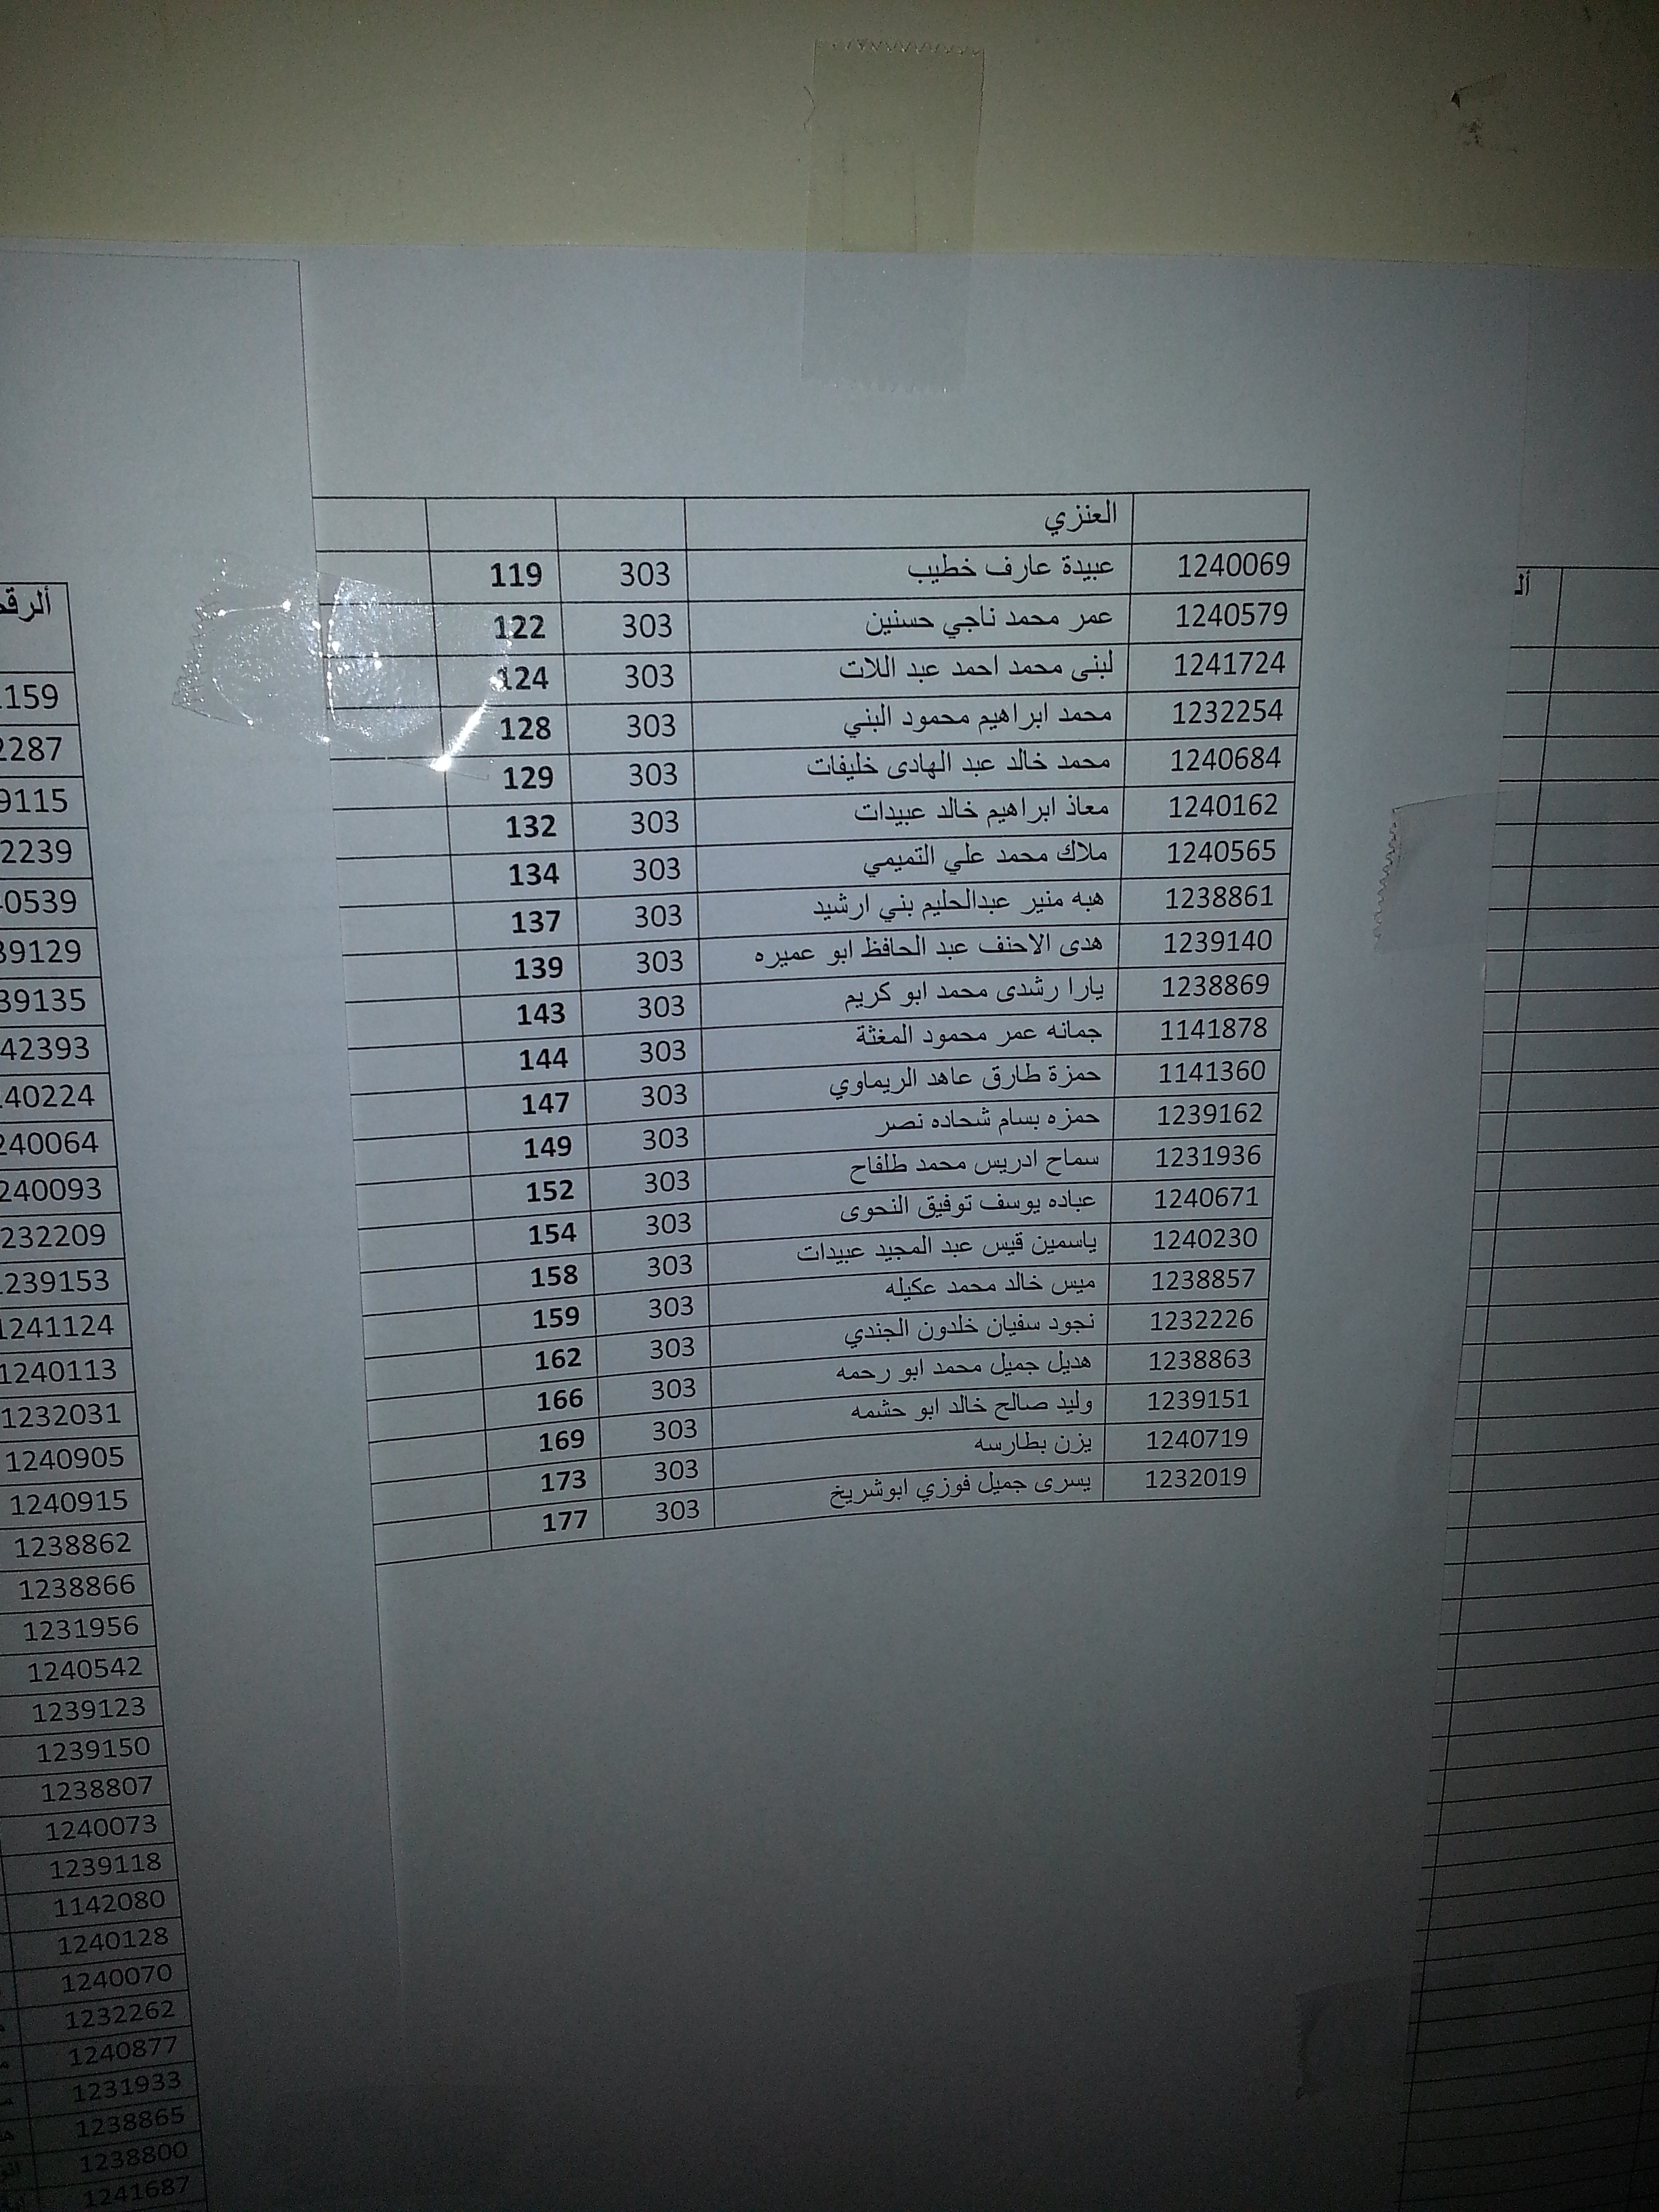 العنزي
1240069 عبيدة عارف خطيب 303 119
1240579 عمر محمد ناجي حسنين 303 122
1241724 لبنى محمد احمد عبد اللات 303 124
1232254 محمد ابراهيم محمود البني 303 128
1240684 محمد خالد عبد الهادى خليفات 303 129
1240162 معاذ ابراهيم خالد عبيدات 303 132
1240565 ملاك محمد علي التميمي 303 134
1238861 هبه منير عبدالحليم بني ارشيد 303 137
1239140 هدى الاحنف عبد الحافظ ابو عميره 303 139
1238869 يارا رشدى محمد ابو كريم 303 143
1141878 جمانه عمر محمود المغثة 303 144
1141360 حمزة طارق عاهد الريماوي 303 147
1239162 حمزه بسام شحاده نصر 303 149
1231936 سماح ادريس محمد طلفاح 303 152
1240671 عباده يوسف توفيق النحوى 303 154
1240230 ياسمين قيس عبد المجيد عبيدات 303 158
1238857 ميس خالد محمد عكيله 303 159
1232226 نجود سفيان خلدون الجندي 303 162
1238863 هديل جميل محمد ابو رحمه 303 166
1239151 وليد صالح خالد ابو حشمه 303 169
1240719 يزن بطارسه 303 173
1232019 يسرى جميل فوزي ابوشريخ 303 177
ألرق
159
2287
9115
2239
0539
39129
39135
42393
40224
240064
240093
232209
239153
1241124
1240113
1232031
1240905
1240915
1238862
1238866
1231956
1240542
1239123
1239150
1238807
1240073
1239118
1142080
1240128
1240070
1232262
1240877
1231933
1238865
1238800
1241687